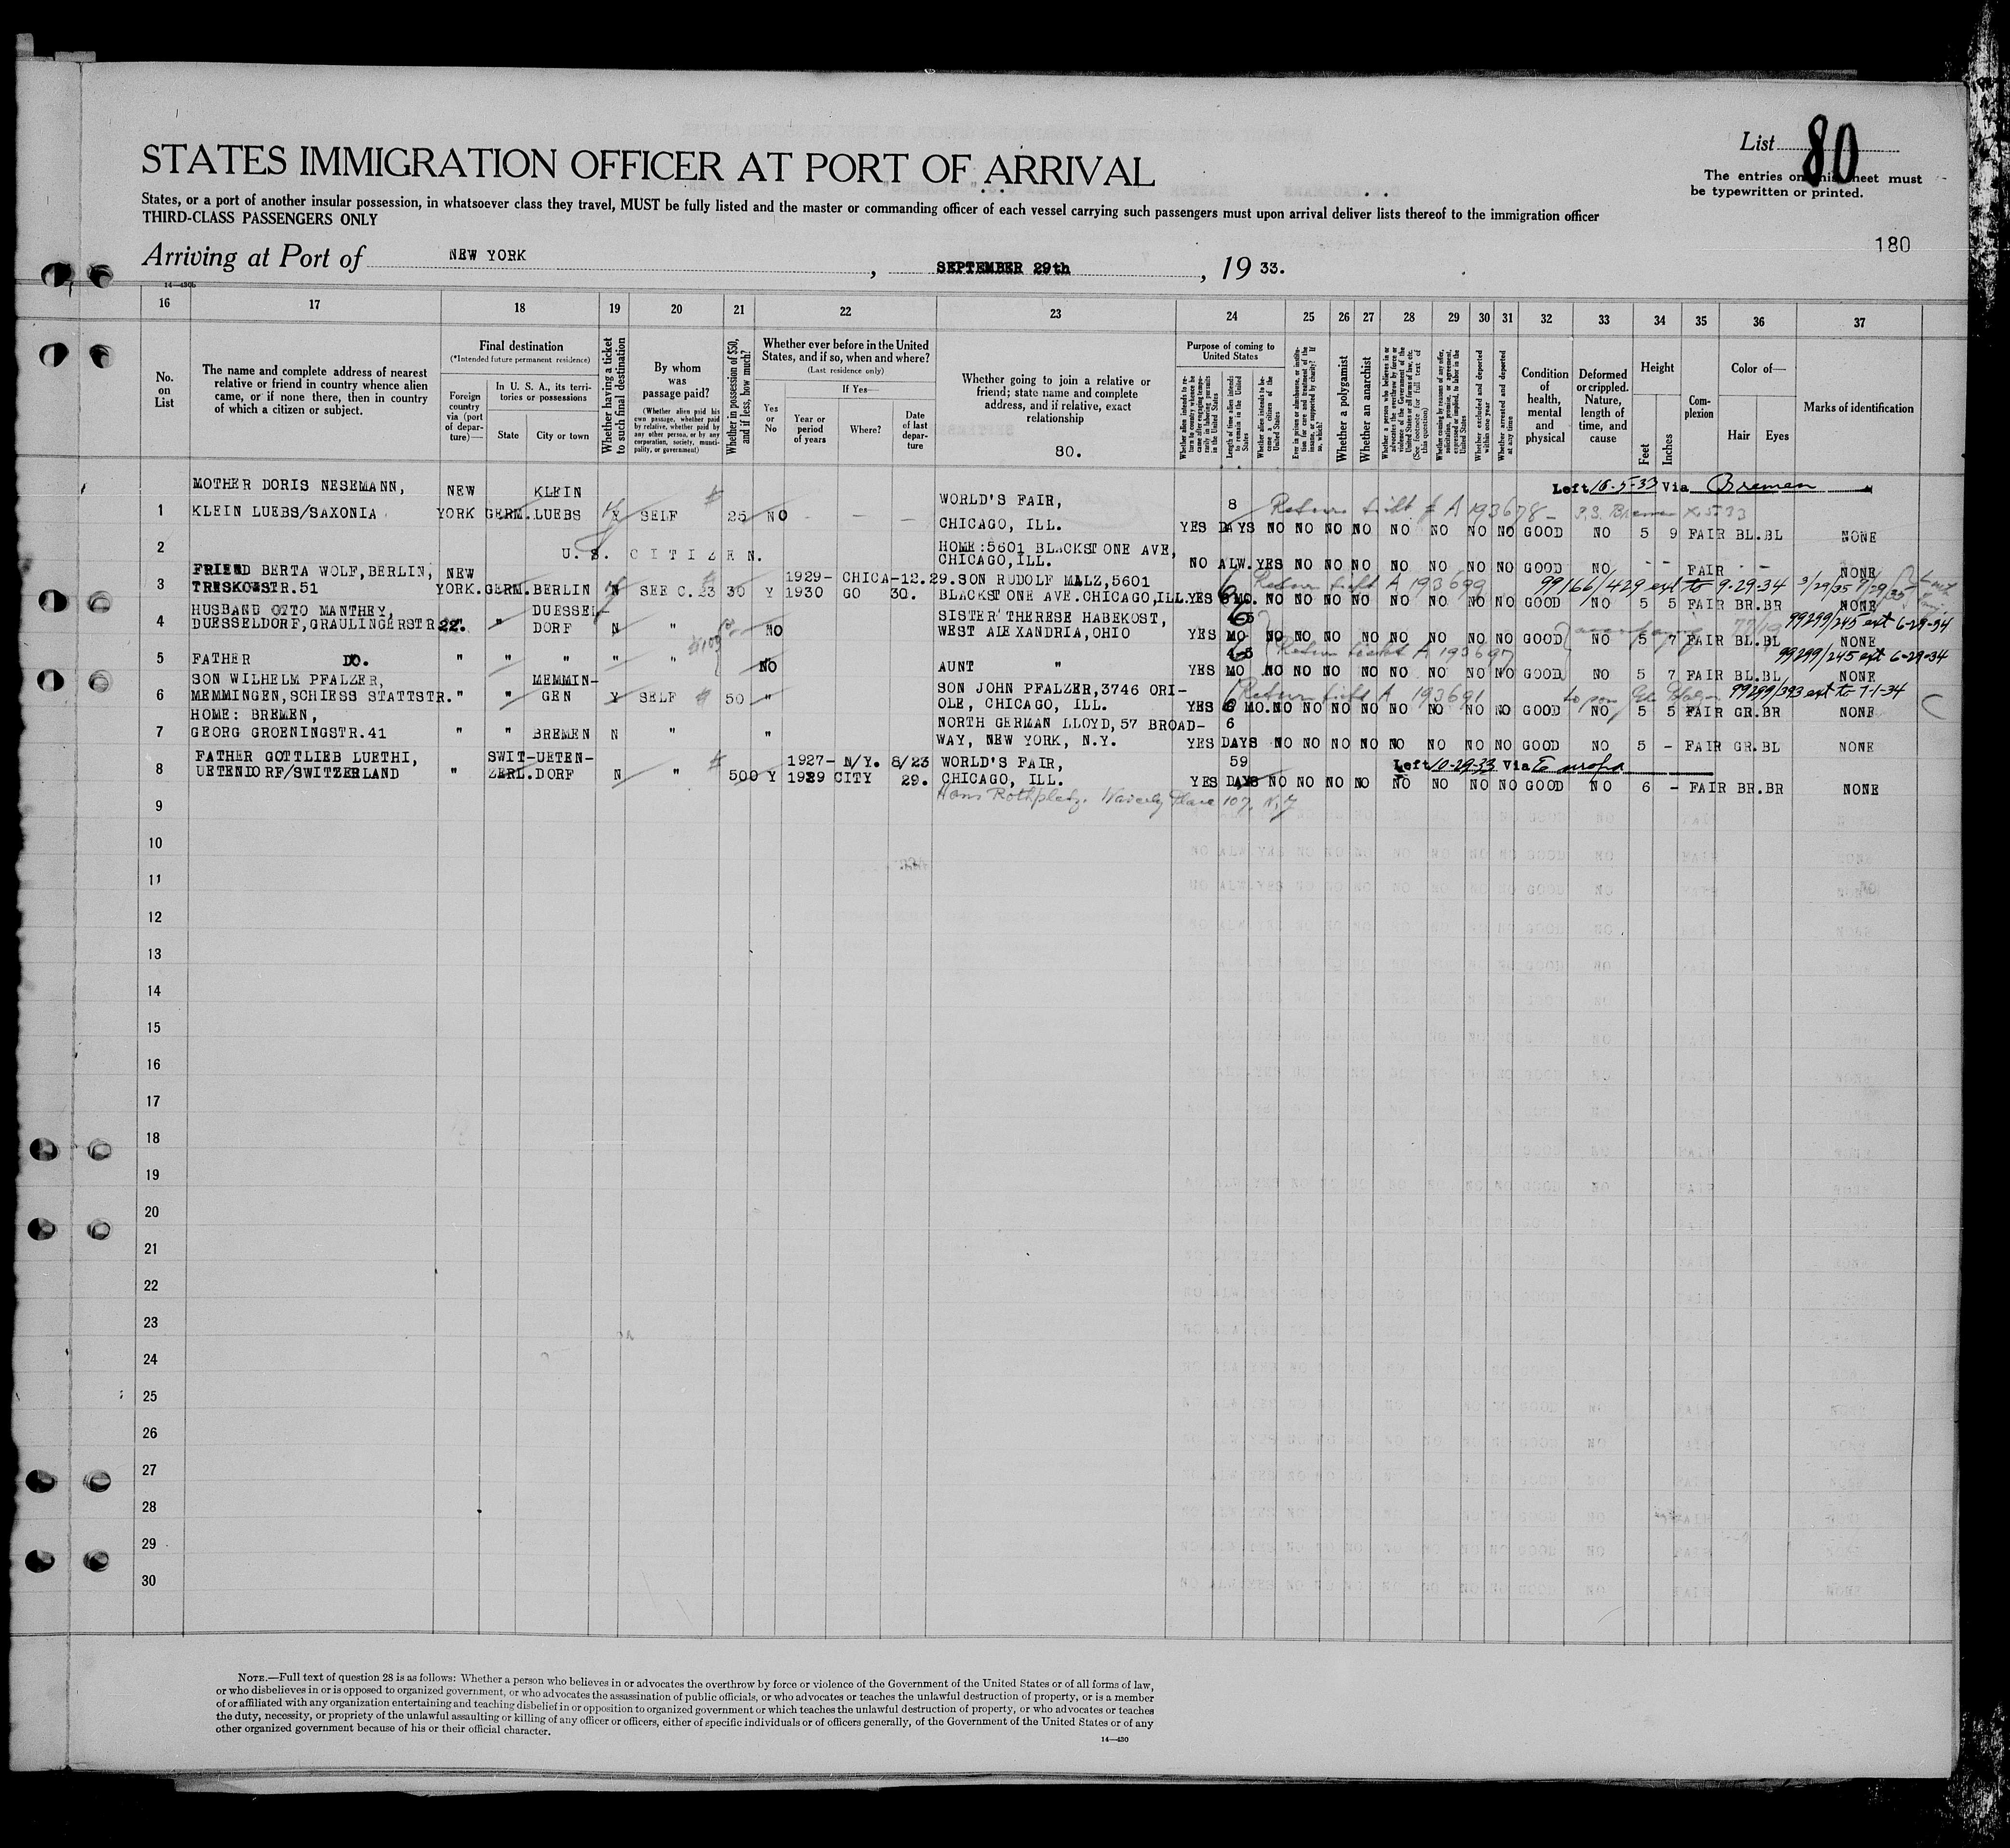 List 80
STATES IMMIGRATION OFFICER AT PORT OF ARRIVAL
The entries on this sheet must
be typewritten or printed.
States, or a port of another insular possession, in whatsoever class they travel, MUST be fully listed and the master or commanding officer of each vessel carrying such passengers must upon arrival deliver lists thereof to the immigration officer
THIRD-CLASS PASSENGERS ONLY
180
Arriving at Port of NEW YORK, SEPTEMBER 29th, 19 33.
16 17 18 19 20 21 22 23 24 25 26 27 28 29 30 31 32 33 34 35 36 37
No. on List
The name and complete address of nearest relative or friend in country whence alien came, or if none there, then in country of which a citizen or subject.
Final destination
(*Intended future permanent residence)
Foreign country via (port of departure)—
In U. S. A., its territories or possessions
State
City or town
Whether having a ticket to such final destination
By whom was passage paid?
(Whether alien paid his own passage, whether paid by relative, whether paid by any other person, or by any corporation, society, municipality, or government)
Whether in possession of $50, and if less, how much?
Whether ever before in the United States, and if so, when and where?
(Last residence only)
Yes or No
If Yes—
Year or period of years
Where?
Date of last departure
Whether going to join a relative or friend; state name and complete address, and if relative, exact relationship
80.
Purpose of coming to United States
Whether alien intends to return to country whence he came after engaging temporarily in laboring pursuits in the United States
Length of time alien intends to remain in the United States
Whether alien intends to become a citizen of the United States
Ever in prison or almshouse, or institution for care and treatment of the insane, or supported by charity? If so, which?
Whether a polygamist
Whether an anarchist
Whether a person who believes in or advocates the overthrow by force or violence of the Government of the United States or all forms of law, etc. (See footnote for full text of this question)
Whether coming by reasons of any offer, solicitation, promise, or agreement, expressed or implied, to labor in the United States
Whether excluded and deported within one year
Whether arrested and deported at any time
Condition of health, mental and physical
Deformed or crippled. Nature, length of time, and cause
Height
Feet
Inches
Complexion
Color of—
Hair
Eyes
Marks of identification
MOTHER DORIS NESEMANN, NEW KLEIN WORLD'S FAIR, 8 Left 10-5-33 Via Bremen
1 KLEIN LUEBS/SAXONIA YORK GERM. LUEBS Y SELF 25 NO - - - CHICAGO, ILL. YES DAYS NO NO NO NO NO NO NO NO GOOD NO 5 9 FAIR BL.BL NONE
A 193678
2 U.S. CITIZEN. HOME:5601 BLACKSTONE AVE,
CHICAGO, ILL. NO ALW. YES NO NO NO NO NO NO NO GOOD NO - - FAIR - - NONE
FRIEND BERTA WOLF, BERLIN, NEW 1929- CHICA-12.29. SON RUDOLF MALZ, 5601 A 193699 99166/429 ext to 9-29-34
3 TRESKOWSTR.51 YORK. GERM. BERLIN N SEE C.23 30 Y 1930 GO 30. BLACKSTONE AVE. CHICAGO, ILL. YES 6 MO. NO NO NO NO NO NO NO NO GOOD NO 5 5 FAIR BR.BR NONE
HUSBAND OTTO MANTHEY, DUESSEL- SISTER THERESE HABEKOST, 99299/245 ext 6-29-34
4 DUESSELDORF, GRAULINGERSTR 22. " " DORF N " NO WEST ALEXANDRIA, OHIO YES MO NO NO NO NO NO NO NO NO GOOD NO 5 7 FAIR BL.BL NONE
Return ticket A 193697 99299/245 ext 6-29-34
5 FATHER DO. " " " " " NO AUNT " YES MO NO NO NO NO NO NO NO NO GOOD NO 5 7 FAIR BL.BL NONE
SON WILHELM PFALZER, MEMMIN- SON JOHN PFALZER, 3746 ORI- A 193691 99299/393 ext to 7-1-34
6 MEMMINGEN, SCHIESS STATTSTR. " " GEN Y SELF 50 " OLE, CHICAGO, ILL. YES 6 MO. NO NO NO NO NO NO NO NO GOOD NO 5 5 FAIR GR.BR NONE
HOME: BREMEN, NORTH GERMAN LLOYD, 57 BROAD- 6
7 GEORG GROENINGSTR.41 " " BREMEN N " " WAY, NEW YORK, N.Y. YES DAYS NO NO NO NO NO NO NO NO GOOD NO 5 - FAIR GR.BL NONE
FATHER GOTTLIEB LUETHI, SWIT-UETEN- 1927- N/Y. 8/23 WORLD'S FAIR, 59 Left 10-29-33 Via Europa
8 UETENDORF/SWITZERLAND " ZERL. DORF N " 500 Y 1929 CITY 29. CHICAGO, ILL. YES DAYS NO NO NO NO NO NO NO NO GOOD NO 6 - FAIR BR.BR NONE
Hans Rothpletz, Waverly Place 107, N.Y
9
10
11
12
13
14
15
16
17
18
19
20
21
22
23
24
25
26
27
28
29
30
NOTE.—Full text of question 28 is as follows: Whether a person who believes in or advocates the overthrow by force or violence of the Government of the United States or of all forms of law,
or who disbelieves in or is opposed to organized government, or who advocates the assassination of public officials, or who advocates or teaches the unlawful destruction of property, or is a member
of or affiliated with any organization entertaining and teaching disbelief in or opposition to organized government or which teaches the unlawful destruction of property, or who advocates or teaches
the duty, necessity, or propriety of the unlawful assaulting or killing of any officer or officers, either of specific individuals or of officers generally, of the Government of the United States or of any
other organized government because of his or their official character.
14—430